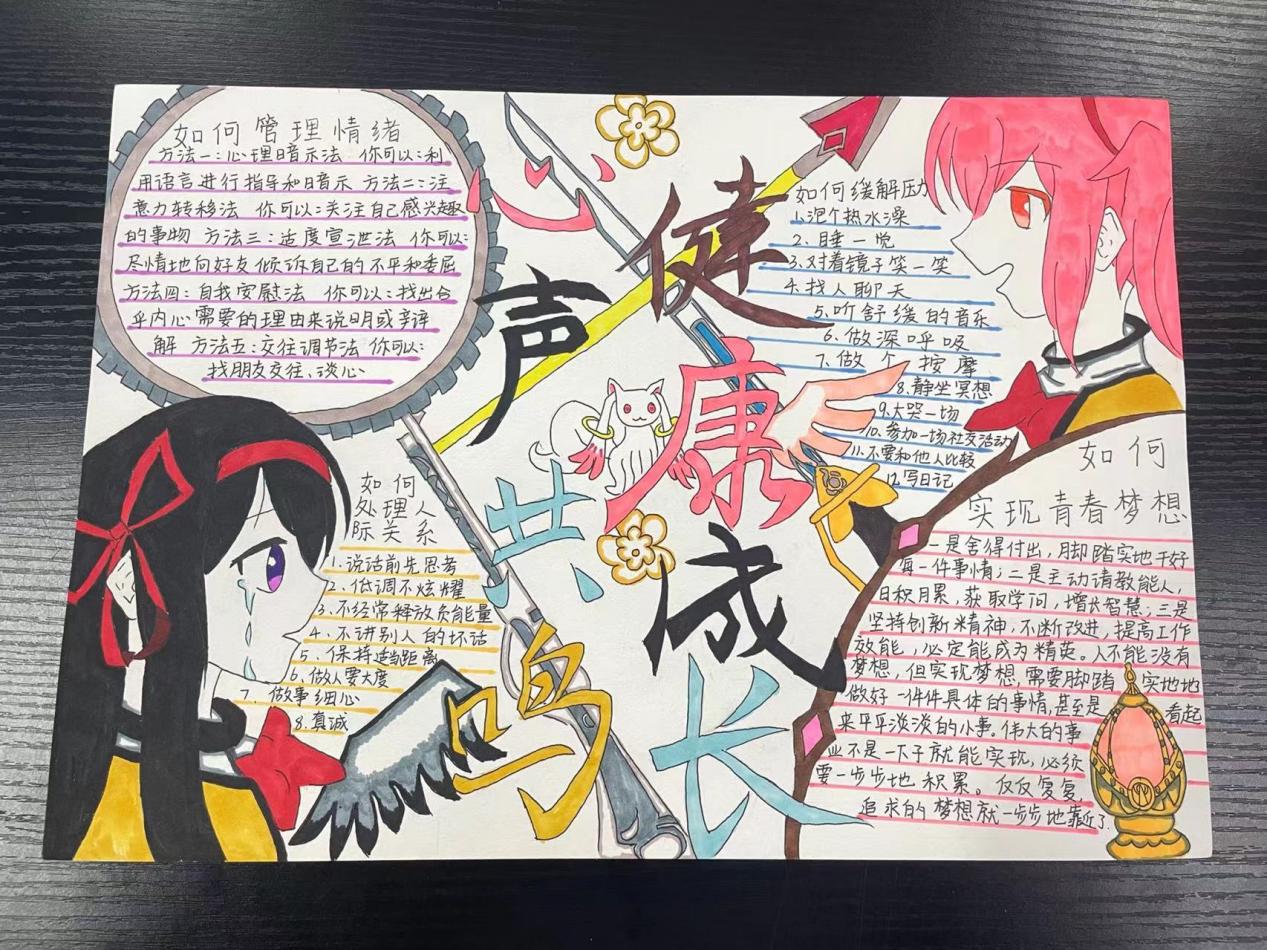 如何管理情绪
方法一:心理暗示法 你可以:利
用语言进行指导和暗示 方法二:注
意力转移法 你可以:关注自己感兴趣
的事物 方法三:适度宣泄法 你可以:
尽情地向好友倾诉自己的不平和委屈
方法四:自我安慰法 你可以:找出合
乎内心需要的理由来说明或辩
解 方法五:交往调节法 你可以:
找朋友交往、谈心
心声共鸣
健康成长
如何缓解压力
1.泡个热水澡
2.睡一觉
3.对着镜子笑一笑
4.找人聊天
5.听舒缓的音乐
6.做深呼吸
7.做个按摩
8.静坐冥想
9.大哭一场
10.参加一场社交活动
11.不要和他人比较
12.写日记
如何
处理人
际关系
1.说话前先思考
2.低调不炫耀
3.不经常释放负能量
4.不讲别人的坏话
5.保持适当距离
6.做人要大度
7.做事细心
8.真诚
如何
实现青春梦想
一是舍得付出,脚踏实地干好
每一件事情;二是主动请教能人,
日积月累,获取学问,增长智慧;三是
坚持创新精神,不断改进,提高工作
效能,必定能成为精英。人不能没有
梦想,但实现梦想,需要脚踏实地地
做好一件件具体的事情,甚至是看起
来平平淡淡的小事。伟大的事
业不是一下子就能实现,必须
要一步步地积累。仅仅复复
追求的梦想就一步步地靠近了.